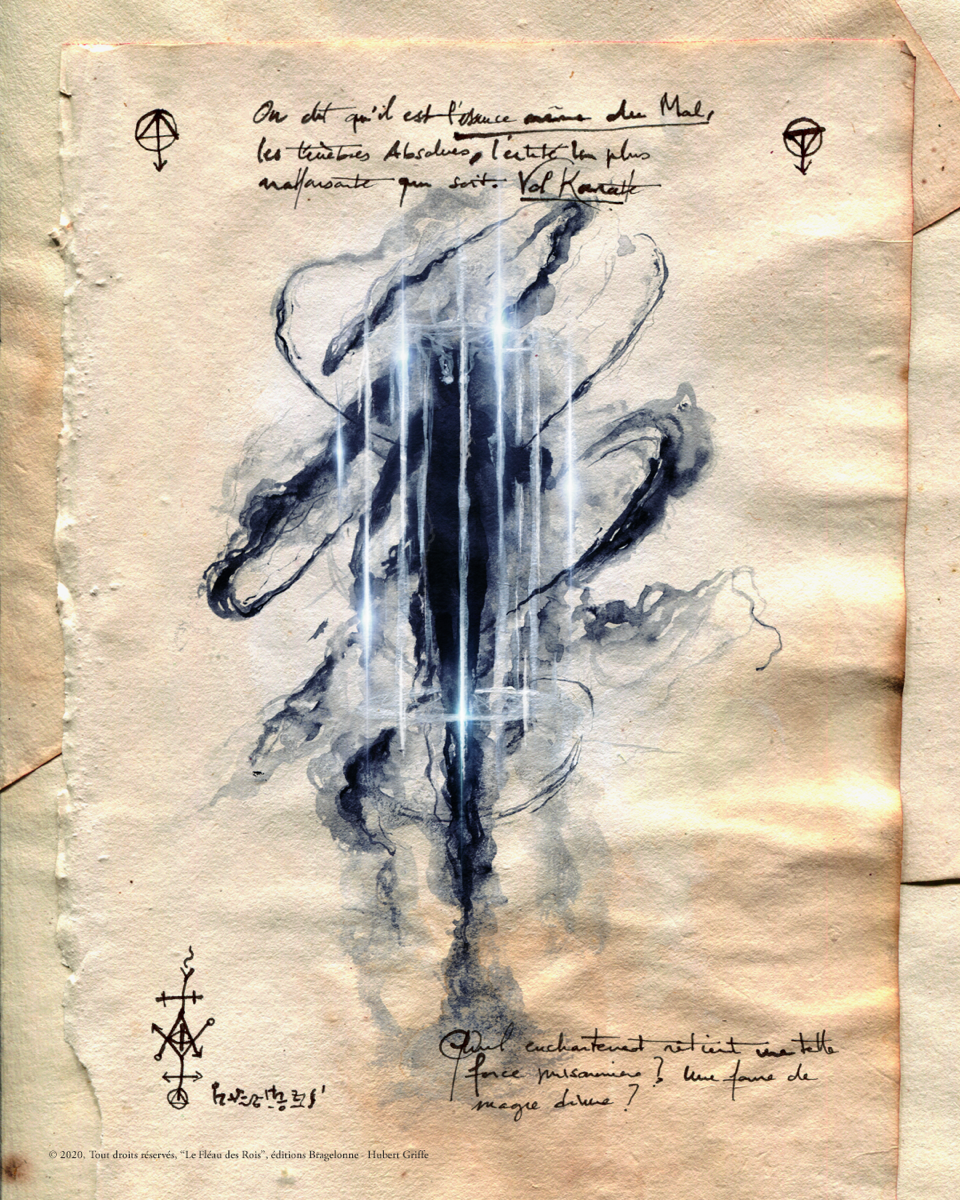 On dit qu'il est l'essence même du Mal,
les ténèbres Absolues, l'entité la plus
malfaisante qui soit. Vol
Quel enchantement retient une telle
force prisonnière ? Une forme de
magie divine ?
© 2020. Tout droits réservés, “Le Fléau des Rois”, éditions Bragelonne - Hubert Griffe